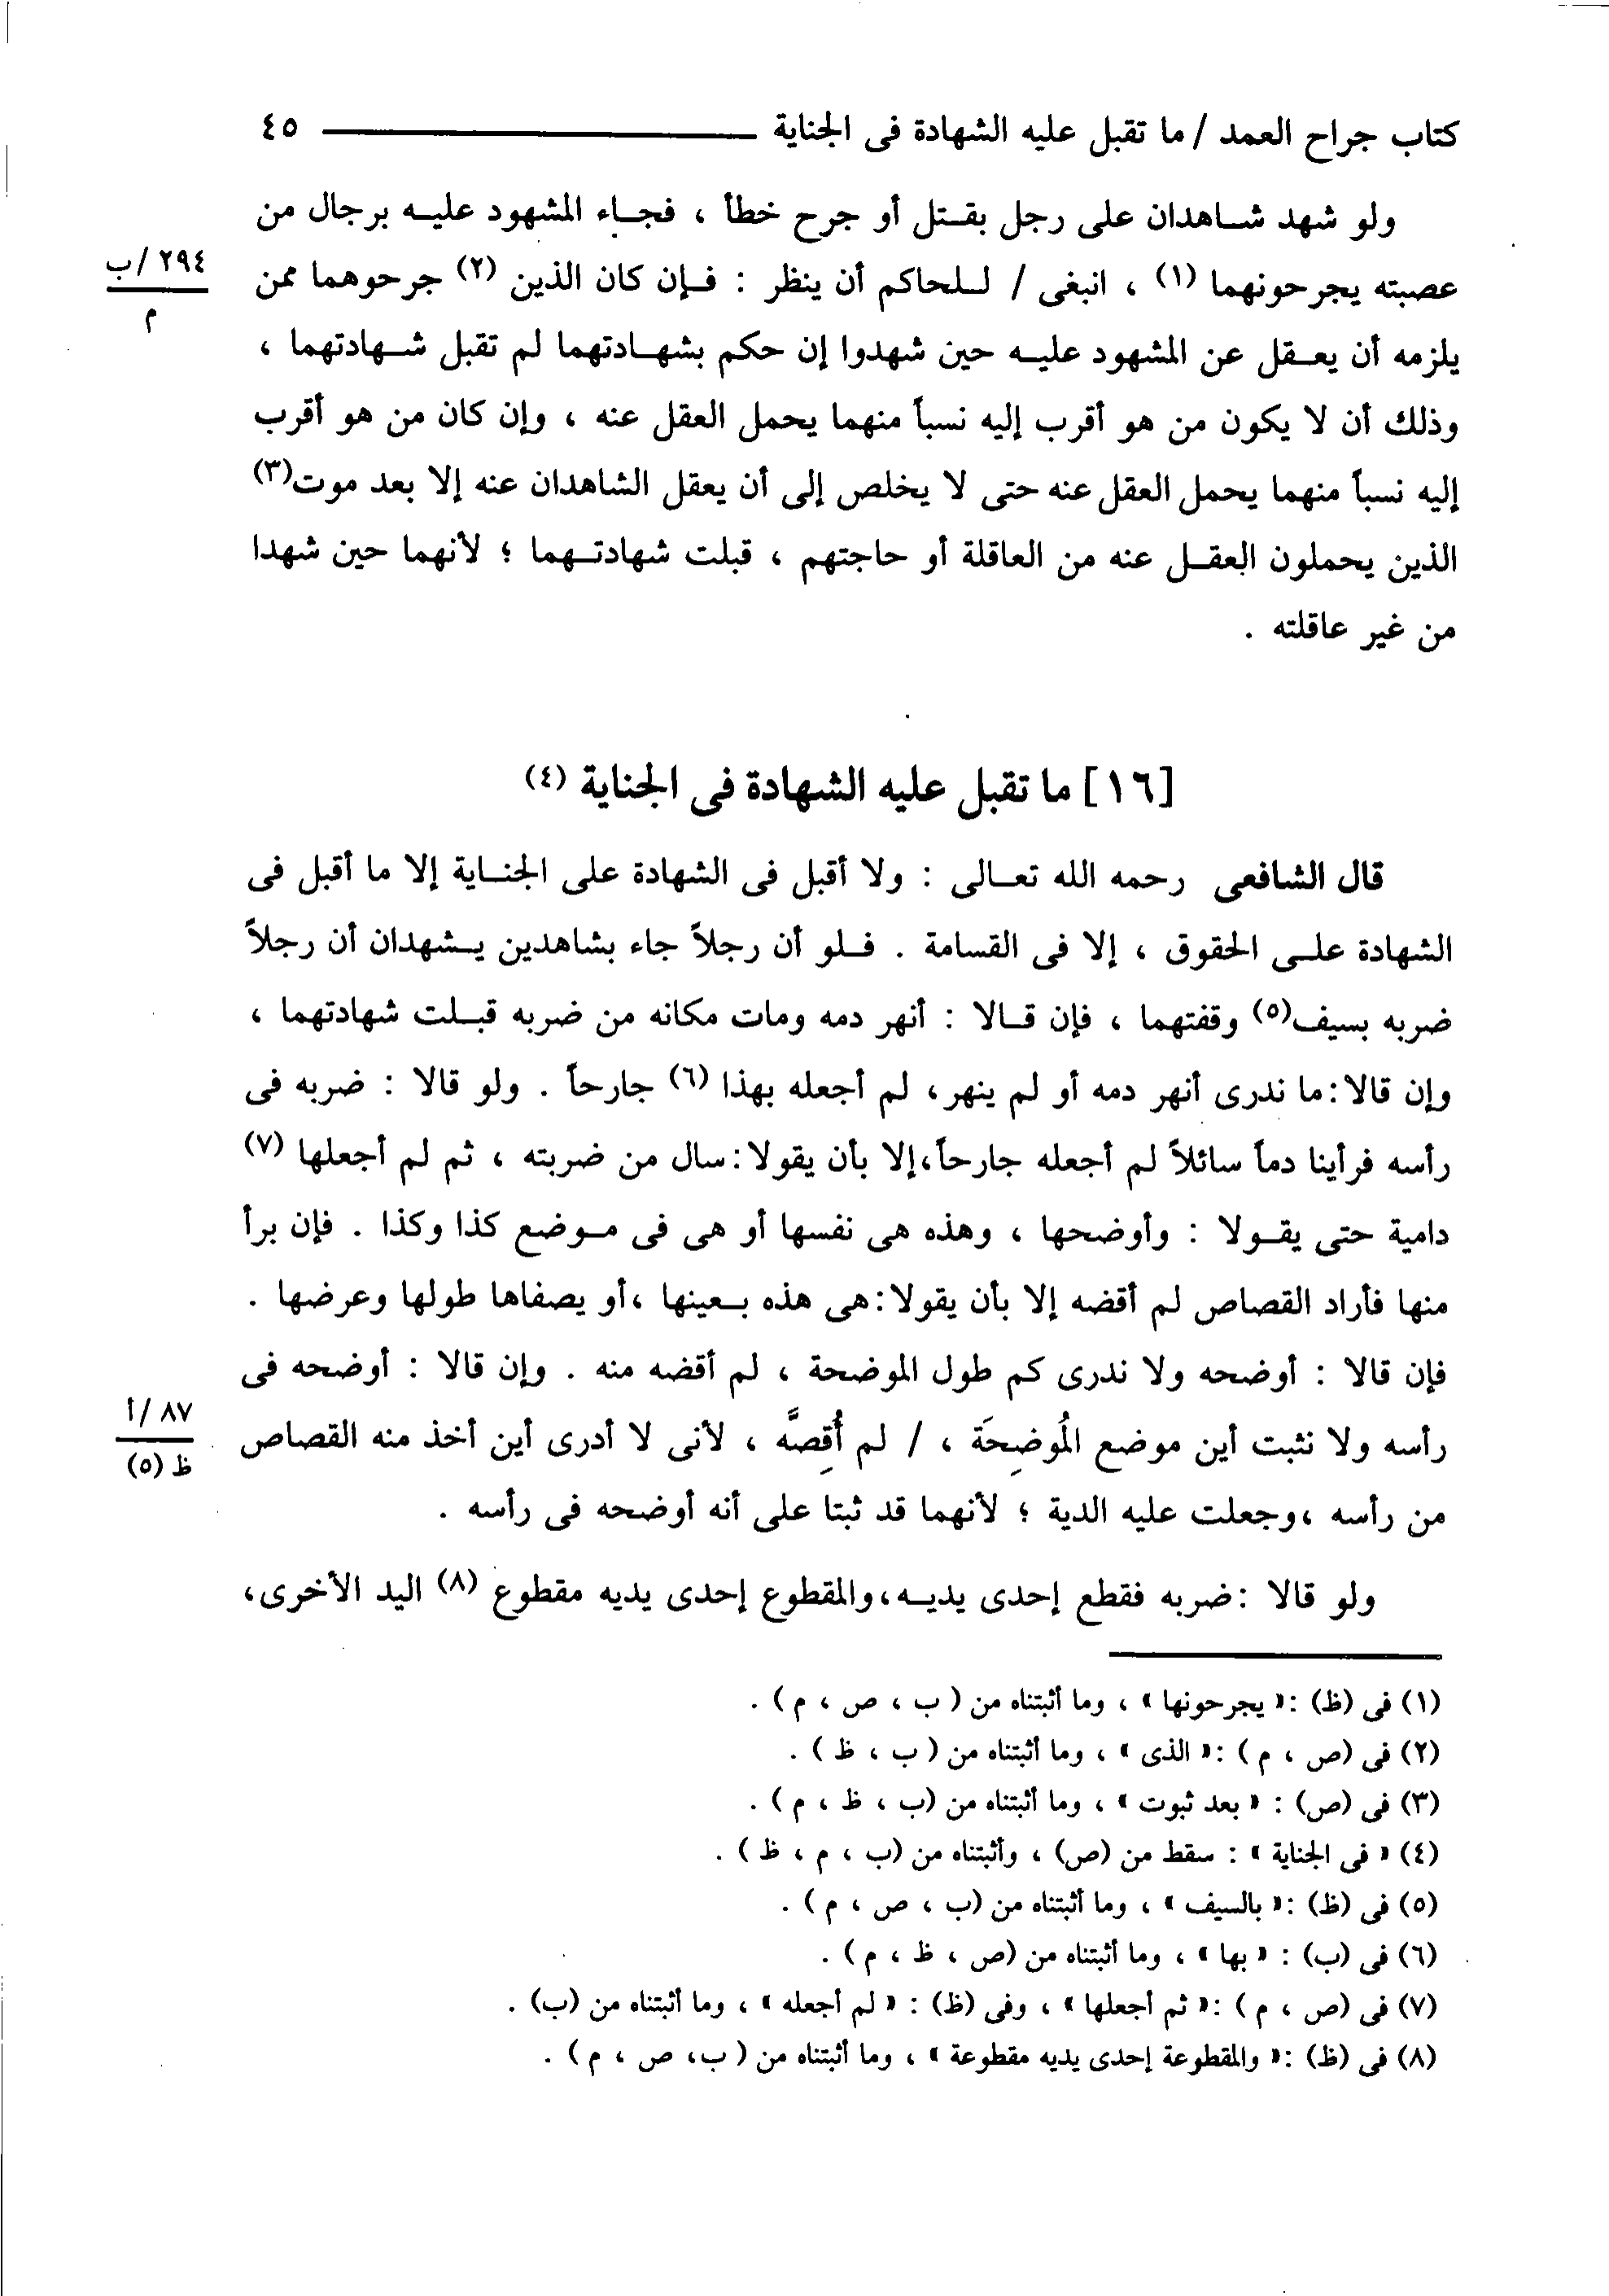 كتاب جراح العمد / ما تقبل عليه الشهادة فى الجناية ـــــــــ ٤٥
ولو شهد شاهدان على رجل بقتل أو جرح خطأ ، فجاء المشهود عليه برجال من
عصبته يجرحونهما (١) ، انبغى / للحاكم أن ينظر : فإن كان الذين (٢) جرحوهما ممن
٢٩٤ /ب
م
يلزمه أن يعقل عن المشهود عليه حين شهدوا إن حكم بشهادتهما لم تقبل شهادتهما ،
وذلك أن لا يكون من هو أقرب إليه نسباً منهما يحمل العقل عنه ، وإن كان من هو أقرب
إليه نسباً منهما يحمل العقل عنه حتى لا يخلص إلى أن يعقل الشاهدان عنه إلا بعد موت(٣)
الذين يحملون العقل عنه من العاقلة أو حاجتهم ، قبلت شهادتهما ؛ لأنهما حين شهدا
من غير عاقلته .
[١٦] ما تقبل عليه الشهادة فى الجناية (٤)
قال الشافعى رحمه الله تعالى : ولا أقبل فى الشهادة على الجناية إلا ما أقبل فى
الشهادة على الحقوق ، إلا فى القسامة . فلو أن رجلاً جاء بشاهدين يشهدان أن رجلاً
ضربه بسيف(٥) وقفتهما ، فإن قالا : أنهر دمه ومات مكانه من ضربه قبلت شهادتهما ،
وإن قالا: ما ندرى أنهر دمه أو لم ينهر، لم أجعله بهذا (٦) جارحاً . ولو قالا : ضربه فى
رأسه فرأينا دماً سائلاً لم أجعله جارحاً،إلا بأن يقولا: سال من ضربته ، ثم لم أجعلها (٧)
دامية حتى يقولا : وأوضحها ، وهذه هى نفسها أو هى فى موضع كذا وكذا . فإن برأ
منها فأراد القصاص لم أقضه إلا بأن يقولا: هى هذه بعينها ،أو يصفاها طولها وعرضها .
فإن قالا : أوضحه ولا ندرى كم طول الموضحة ، لم أقضه منه . وإن قالا : أوضحه فى
رأسه ولا نثبت أين موضع المُوضِحَة ، / لم أُقِصَّه ، لأنى لا أدرى أين أخذ منه القصاص
٨٧ /أ
ظ (٥)
من رأسه ،وجعلت عليه الدية ؛ لأنهما قد ثبتا على أنه أوضحه فى رأسه .
ولو قالا : ضربه فقطع إحدى يديه،والمقطوع إحدى يديه مقطوع (٨) اليد الأخرى،
(١) فى (ظ) :« يجرحونها » ، وما أثبتناه من ( ب ، ص ، م ) .
(٢) فى (ص ، م ) :« الذى » ، وما أثبتناه من ( ب ، ظ ) .
(٣) فى (ص) : « بعد ثبوت » ، وما أثبتناه من (ب ، ظ ، م ) .
(٤) « فى الجناية » : سقط من (ص) ، وأثبتناه من (ب ، م ، ظ ) .
(٥) فى (ظ) :« بالسيف » ، وما أثبتناه من (ب ، ص ، م ) .
(٦) فى (ب) : « بها » ، وما أثبتناه من (ص ، ظ ، م ) .
(٧) فى (ص ، م ) :« ثم أجعلها » ، وفى (ظ) : « لم أجعله » ، وما أثبتناه من (ب) .
(٨) فى (ظ) :« والمقطوعة إحدى يديه مقطوعة » ، وما أثبتناه من ( ب، ص ، م ) .